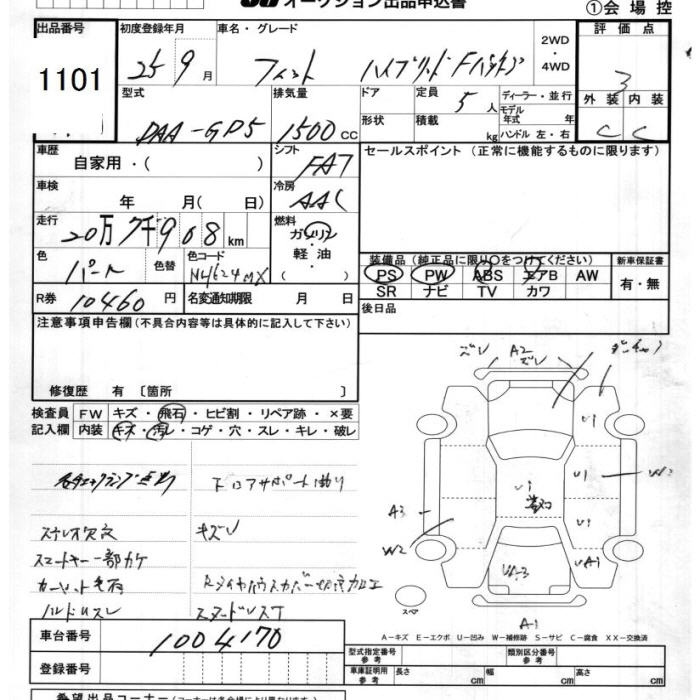 オークション出品申込書
①会場控
出品番号 初度登録年月 車名・グレード 評価点
1101 25 9月 フィット ハイブリッド Fパッケージ 2WD・4WD 3
型式 排気量 ドア 定員 5人 ディーラー・並行 外装 内装
モデル年式 年
DAA-GP5 1500cc 形状 積載 kg ハンドル 左・右 C C
車歴 自家用・( ) シフト FAT セールスポイント (正常に機能するものに限ります)
車検 年 月(日) 冷房 AAC
走行 20万7千908km 燃料 ガソリン・軽油・( )
装備品(純正品に限り○をつけてください) 新車保証書
色 パール 色替 色コード NH624MX
PS PW ABS エアB AW 有・無
SR ナビ TV カワ
R券 10460円 名変通知期限 月 日 後日品
注意事項申告欄(不具合内容等は具体的に記入して下さい)
修復歴 有〔箇所 〕
検査員 FW キズ・飛石・ヒビ割・リペア跡・×要
記入欄 内装 キズ・汚レ・コゲ・穴・スレ・キレ・破レ
ズレ A2 ズレ
U1
U1 U1 W2
A3 U1
W2 UA1
A1
スペア
下口アサポート曲り
ステレオ欠品 キズV
スマートキー一部カケ
ハンドルスレ
A-キズ E-エクボ U-凹み W-補修跡 S-サビ C-腐食 XX-交換済
車台番号 1004170
登録番号
型式指定番号 参考 類別区分番号 参考
車庫証明用 参考 長さ cm 幅 cm 高さ cm
希望出品コーナー